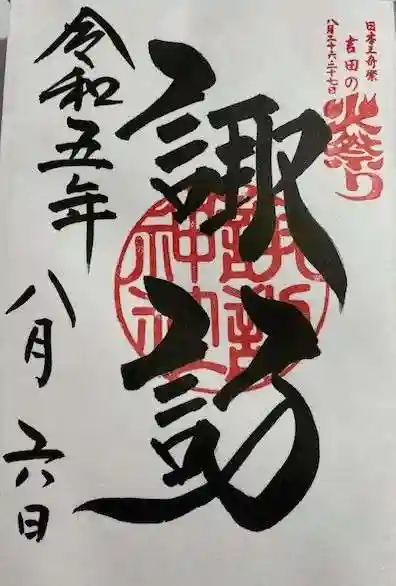 日本三奇祭
吉田の
火祭り
八月二十六・二十七日
諏訪
諏訪神社
令和五年
八月
二六日